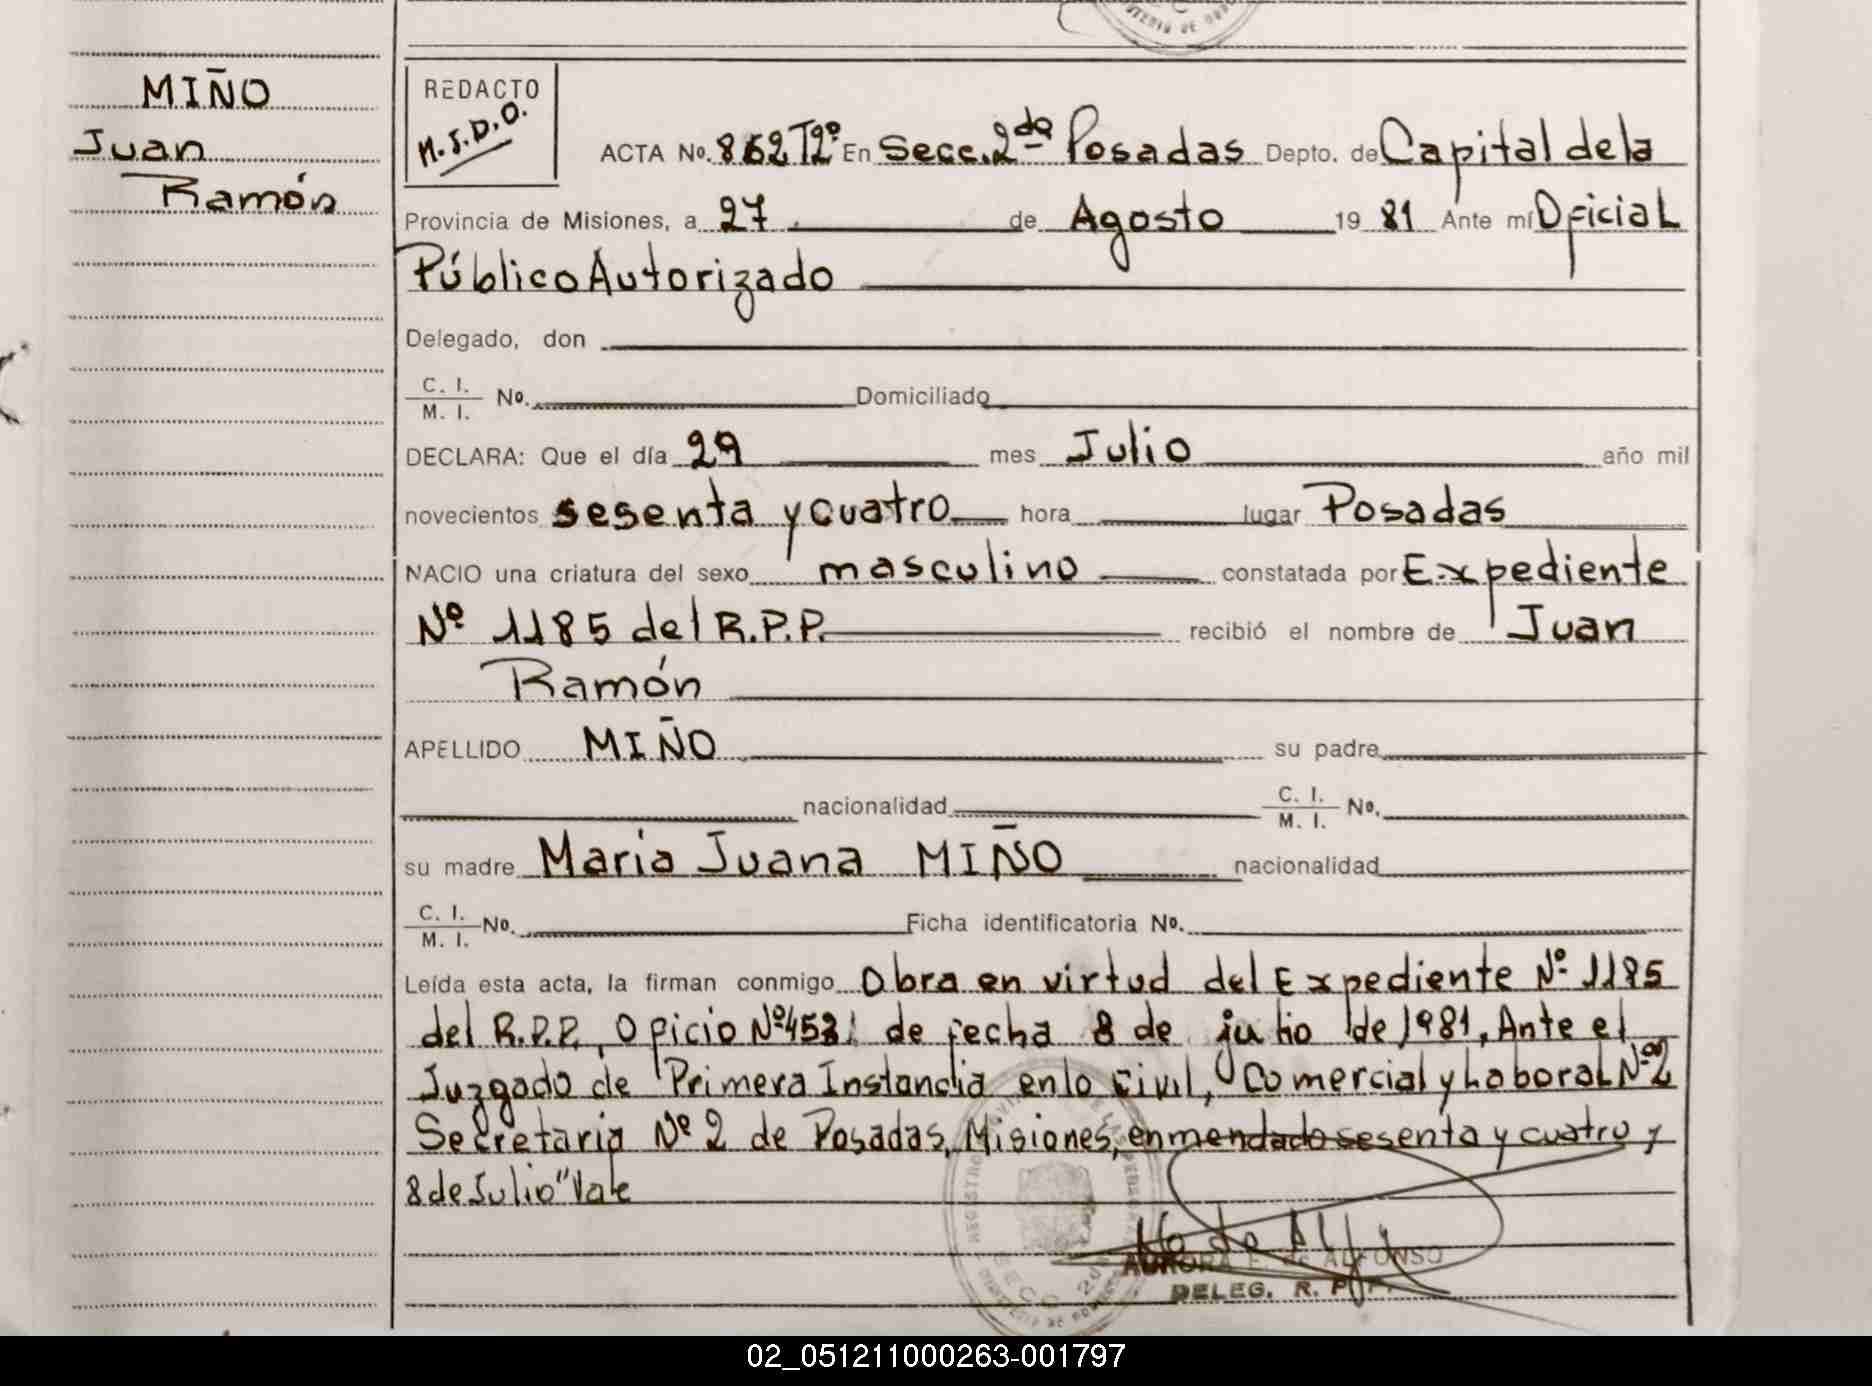 MIÑO
Juan
Ramón
REDACTO
M.S.D.O.
ACTA No. 862 T2º En Secc. 2da Posadas Depto. de Capital de la
Provincia de Misiones, a 27 de Agosto 1981 Ante mí Oficial
Público Autorizado
Delegado, don
C. I. / M. I. No. Domiciliado
DECLARA: Que el día 29 mes Julio año mil
novecientos sesenta y cuatro hora lugar Posadas
NACIO una criatura del sexo masculino constatada por Expediente
Nº 1185 del R.P.P. recibió el nombre de Juan
Ramón
APELLIDO MIÑO su padre
nacionalidad C. I. / M. I. No.
su madre Maria Juana MIÑO nacionalidad
C. I. / M. I. No. Ficha identificatoria No.
Leída esta acta, la firman conmigo Obra en virtud del Expediente Nº 1185
del R.P.P, Oficio Nº 453, de fecha 8 de julio de 1981, Ante el
Juzgado de Primera Instancia en lo Civil, Comercial y Laboral Nº 2
Secretaria Nº 2 de Posadas, Misiones, enmendado sesenta y cuatro y
8 de Julio "Vale
AURORA F. de ALFONSO
DELEG. R. P. P.
02_051211000263-001797